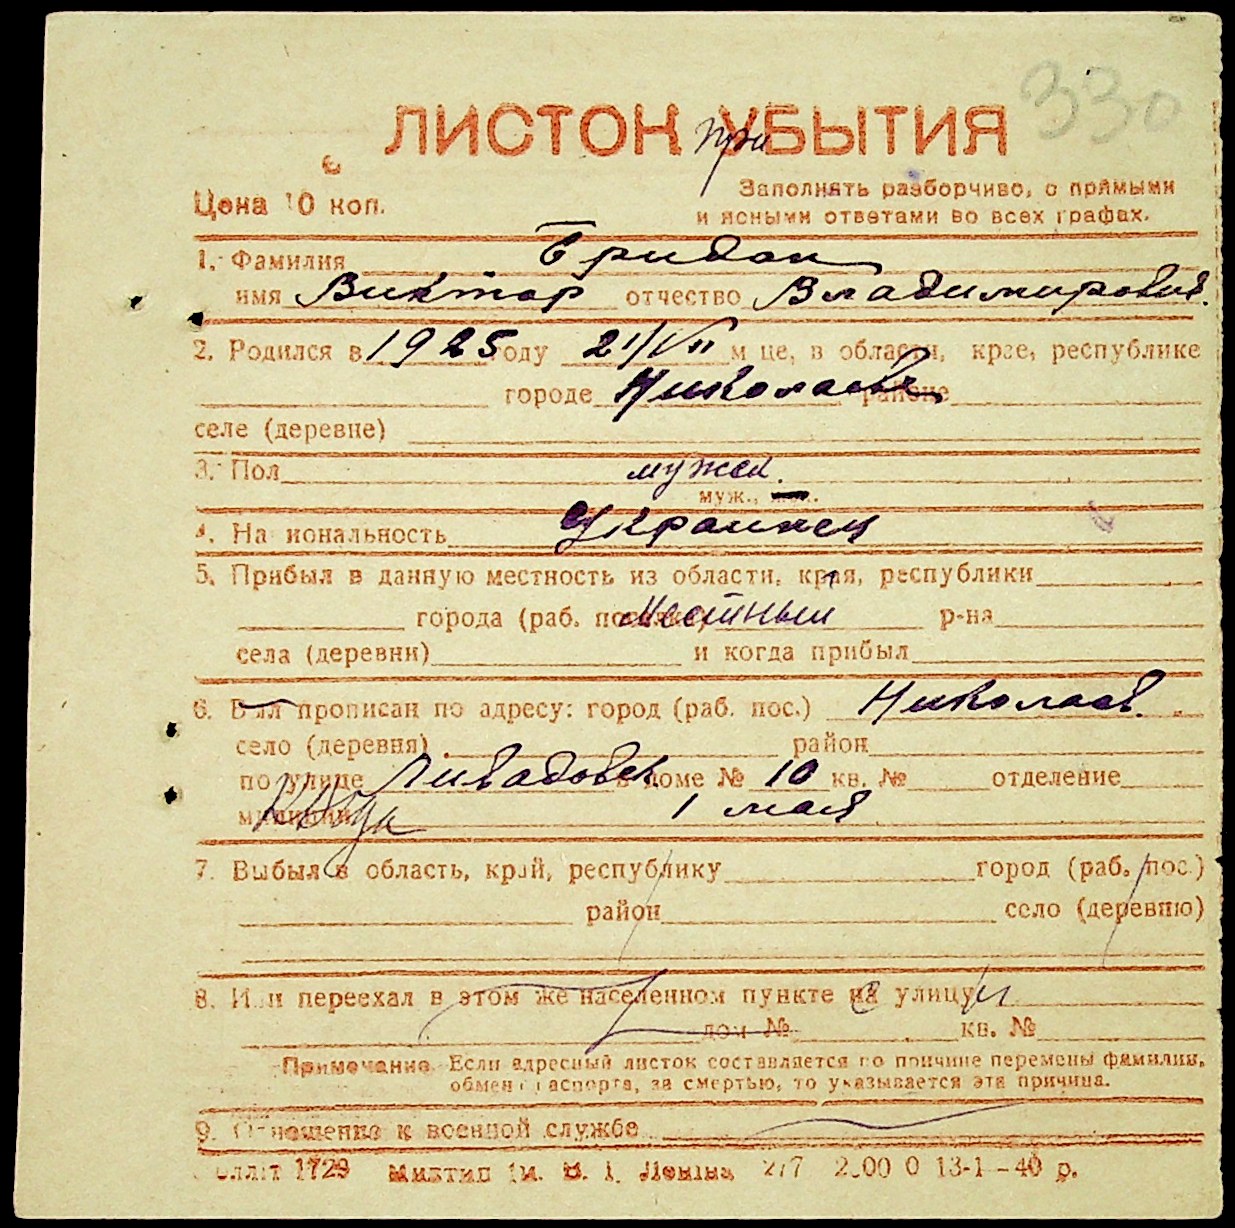 330
ЛИСТОК при УБЫТИЯ
Цена 10 коп.
Заполнять разборчиво, с прямыми
и ясными ответами во всех графах.
1. Фамилия Бридан
имя Виктор отчество Владимирович.
2. Родился в 1925 году 21/VII м це, в области, крае, республике
городе Николаеве районе
селе (деревне)
3. Пол мужск.
муж.,
4. Национальность Украинец
5. Прибыл в данную местность из области, края, республики
города (раб. поселка) Местный р-на
села (деревни) и когда прибыл
6. Был прописан по адресу: город (раб. пос.) Николаев.
село (деревня) район
по улице Ливадовск в доме № 10 кв. № отделение
милиции 1 мая
7. Выбыл в область, край, республику город (раб. пос.)
район село (деревню)
8. Или переехал в этом же населенном пункте на улицу
дом № кв. №
Примечание Если адресный листок составляется по причине перемены фамилии,
обмена паспорта, за смертью, то указывается эта причина.
9. Отношение к военной службе
1729 им. В. И. Ленина 13-1-40 р.